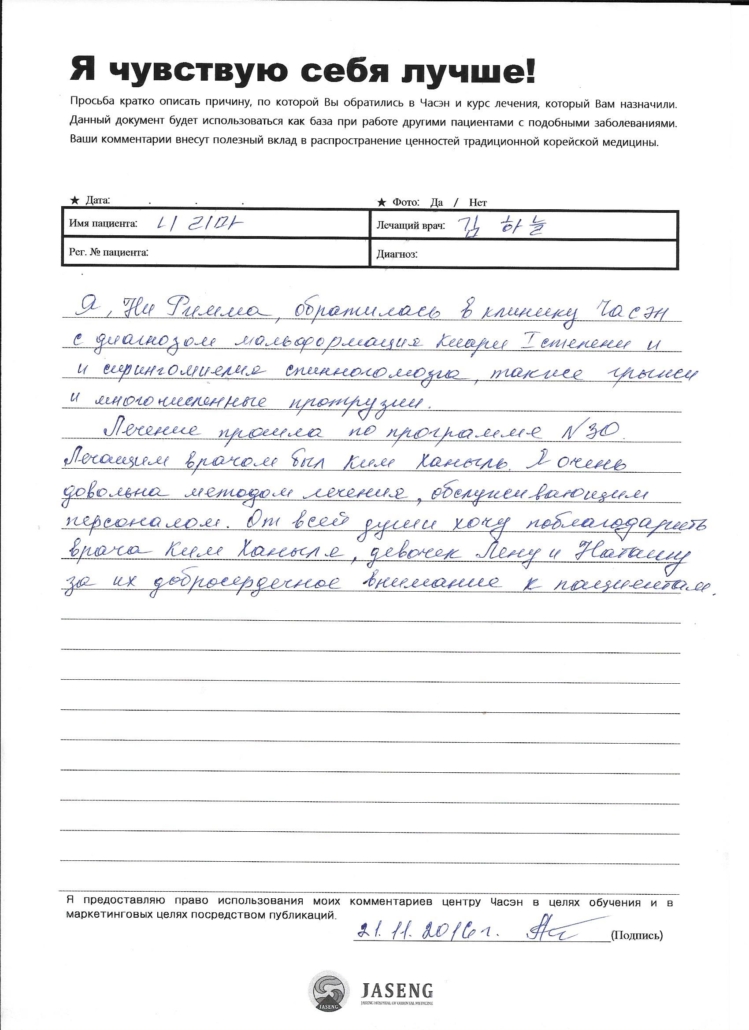 Я чувствую себя лучше!
Просьба кратко описать причину, по которой Вы обратились в Часэн и курс лечения, который Вам назначили.
Данный документ будет использоваться как база при работе другими пациентами с подобными заболеваниями.
Ваши комментарии внесут полезный вклад в распространение ценностей традиционной корейской медицины.
★ Дата: . . . ★ Фото: Да / Нет
Имя пациента: 니 리마 Лечащий врач: 김 하늘
Рег. № пациента: Диагноз:
Я, Ни Римма, обратилась в клинику Часэн
с диагнозом мальформация Киари I степени и
и сирингомиелия спинного мозга, также грыжи
и многочисленные протрузии.
Лечение прошла по программе N 30.
Лечащим врачом был Ким Ханыль. Я очень
довольна методом лечения, обслуживающим
персоналом. От всей души хочу поблагодарить
врача Ким Ханыля, девочек Лену и Наташу
за их добросердечное внимание к пациентам.
Я предоставляю право использования моих комментариев центру Часэн в целях обучения и в
маркетинговых целях посредством публикаций.
21.11.2016 г. (Подпись)
JASENG
JASENG